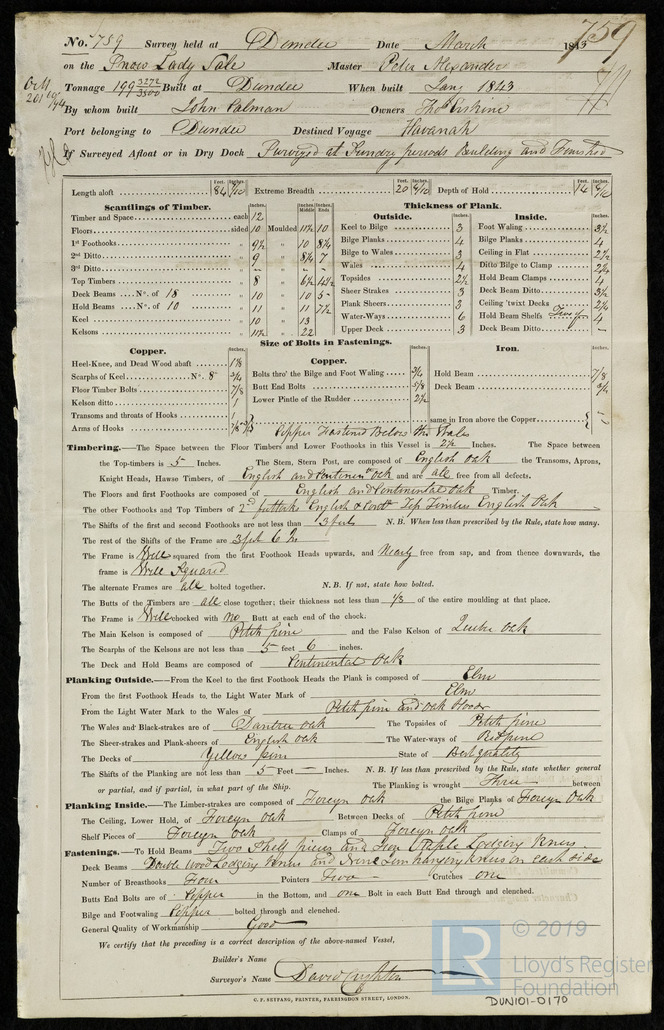 No. 759 Survey held at Dundee Date March 1843
759
on the Snow Lady Sale Master Peter Alexander
Tonnage 199 3272/3500 Built at Dundee When built Jany 1843
By whom built John Calman Owners Thos Erskine
Port belonging to Dundee Destined Voyage Havanah
If Surveyed Afloat or in Dry Dock Surveyed at Sundry periods Building and Finished
Length aloft 84 Extreme Breadth 20 Depth of Hold 14
Scantlings of Timber. Thickness of Plank.
Outside. Inside.
Timber and Space each 12
Floors sided 10 Moulded 11½ 10
1st Foothooks 9½ " 10 8¼
2nd Ditto 9 " 8¾ 7
3rd Ditto
Top Timbers 8 " 6½
Deck Beams No. of 18 10 " 10 5
Hold Beams No. of 10 11 " 11 7½
Keel 10 " 13
Kelsons 11½ " 22
Keel to Bilge 3
Bilge Planks 4
Bilge to Wales 3
Wales 4
Topsides 2½
Sheer Strakes 3
Plank Sheers 3
Water-Ways 6
Upper Deck 3
Foot Waling 3½
Bilge Planks 4
Ceiling in Flat 2½
Ditto Bilge to Clamp 2¾
Hold Beam Clamps 4
Deck Beam Ditto 3½
Ceiling 'twixt Decks 2¼
Hold Beam Shelfs 4
Deck Beam Ditto
Size of Bolts in Fastenings.
Copper. Copper. Iron.
Heel-Knee, and Dead Wood abaft 1⅛
Scarphs of Keel No. 8 ¾
Floor Timber Bolts ⅞
Kelson ditto 1
Transoms and throats of Hooks 1
Arms of Hooks
Bolts thro' the Bilge and Foot Waling ¾
Butt End Bolts ⅝
Lower Pintle of the Rudder 2½
Hold Beam ⅞
Deck Beam ¾
same in Iron above the Copper
Copper Fastened Below the Wales
Timbering.—The Space between the Floor Timbers and Lower Foothooks in this Vessel is 2½ Inches. The Space between
the Top-timbers is 5 Inches. The Stem, Stern Post, are composed of English Oak the Transoms, Aprons,
Knight Heads, Hawse Timbers, of English and Continen'l oak and are all free from all defects.
The Floors and first Foothooks are composed of English and Continental Oak Timber.
The other Foothooks and Top Timbers of 2d futtocks English & Contl Top Timbers English Oak
The Shifts of the first and second Foothooks are not less than 3 feet N. B. When less than prescribed by the Rule, state how many.
The rest of the Shifts of the Frame are 3 feet 6 In
The Frame is Well squared from the first Foothook Heads upwards, and Nearly free from sap, and from thence downwards, the
frame is Well Squared
The alternate Frames are all bolted together. N. B. If not, state how bolted.
The Butts of the Timbers are all close together; their thickness not less than 1/3 of the entire moulding at that place.
The Frame is Well chocked with no Butt at each end of the chock.
The Main Kelson is composed of Pitch pine and the False Kelson of Quebec Oak
The Scarphs of the Kelsons are not less than 5 feet 6 inches.
The Deck and Hold Beams are composed of Continental Oak
Planking Outside.—From the Keel to the first Foothook Heads the Plank is composed of Elm
From the first Foothook Heads, to the Light Water Mark of Elm
From the Light Water Mark to the Wales of Pitch pine and oak Hoods
The Wales and Black-strakes are of Dantzic oak The Topsides of Pitch pine
The Sheer-strakes and Plank-sheers of English oak The Water-ways of Red pine
The Decks of Yellow pine State of Best quality
The Shifts of the Planking are not less than 5 Feet — Inches. N. B. If less than prescribed by the Rule, state whether general
or partial, and if partial, in what part of the Ship. The Planking is wrought Three between
Planking Inside.—The Limber-strakes are composed of Foreign Oak the Bilge Planks of Foreign Oak
The Ceiling, Lower Hold, of Foreign Oak Between Decks of Pitch pine
Shelf Pieces of Foreign oak Clamps of Foreign oak
Fastenings.—To Hold Beams Two Shelf pieces and Staple Lodging Knees
Deck Beams Double Wood Lodging Knees and Nine Iron hanging Knees on each side
Number of Breasthooks Four Pointers Two Crutches one
Butts End Bolts are of Copper in the Bottom, and one Bolt in each Butt End through and clenched.
Bilge and Footwaling Copper bolted through and clenched.
General Quality of Workmanship Good
We certify that the preceding is a correct description of the above-named Vessel,
Builder's Name
Surveyor's Name David Crighton
C. F. SEYFANG, PRINTER, FARRINGDON STREET, LONDON.
LR © 2019
Lloyd's Register
Foundation
DUN101-0170